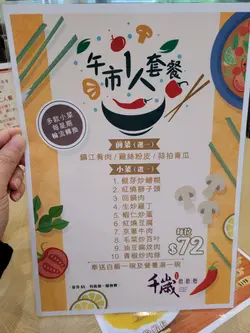 午市1人套餐
多款小菜
每星期
輪流轉換
前菜(選一)
鎮江肴肉/雞絲粉皮/蒜拍青瓜
小菜(選一)
1. 銀芽炒鱔糊
2. 紅燒獅子頭
3. 回鍋肉
4. 生炒雞丁
5. 蝦仁炒蛋
6. 紅燒豆腐
7. 京蔥牛肉
8. 毛菜炒百叶
9. 油豆腐炆肉
10. 青椒炒肉絲
每位
$72
奉送白飯一碗及營養湯一碗
千歲